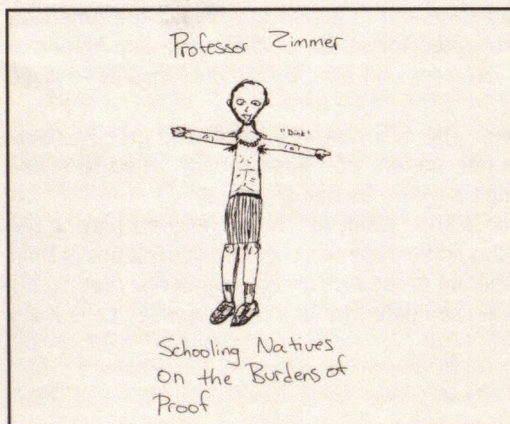 Professor Zimmer
"Dink"
Schooling Natives
on the Burdens of
Proof